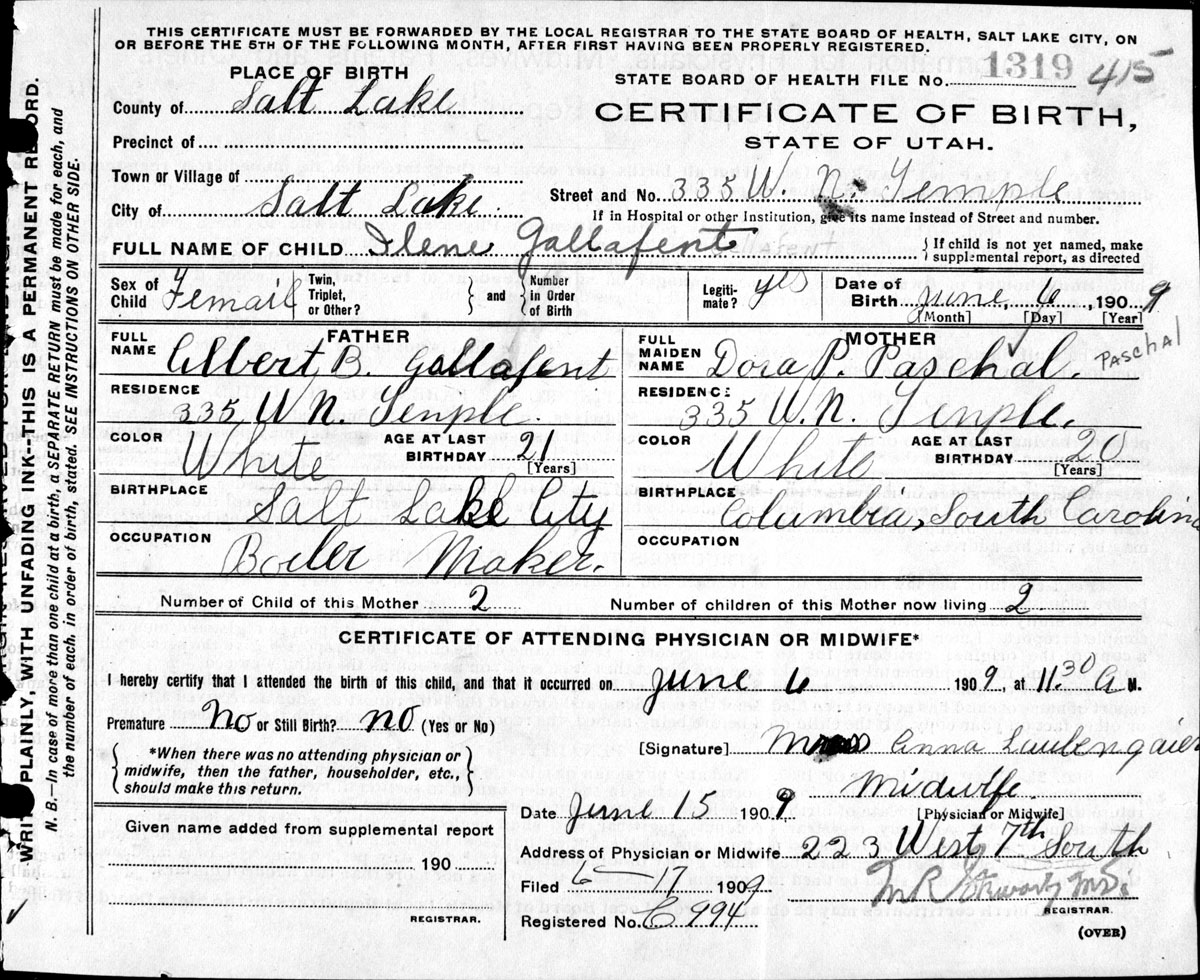 THIS CERTIFICATE MUST BE FORWARDED BY THE LOCAL REGISTRAR TO THE STATE BOARD OF HEALTH, SALT LAKE CITY, ON
OR BEFORE THE 5TH OF THE FOLLOWING MONTH, AFTER FIRST HAVING BEEN PROPERLY REGISTERED.
PLACE OF BIRTH
STATE BOARD OF HEALTH FILE No. 1319 415
County of Salt Lake
CERTIFICATE OF BIRTH,
Precinct of
STATE OF UTAH.
Town or Village of
City of Salt Lake
Street and No. 335 W. N. Temple
If in Hospital or other Institution, give its name instead of Street and number.
FULL NAME OF CHILD Ilene Gallafent
If child is not yet named, make
supplemental report, as directed
Sex of Child Femail
Twin, Triplet, or Other?
and
Number in Order of Birth
Legiti-mate? yes
Date of Birth June 6, 1909
[Month] [Day] [Year]
FATHER
FULL NAME Albert B. Gallafent
RESIDENCE 335 W N. Tenple.
COLOR White
AGE AT LAST BIRTHDAY 21
[Years]
BIRTHPLACE Salt Lake City
OCCUPATION Boiler Maker.
MOTHER
FULL MAIDEN NAME Dora P. Paschal. PASCHAL
RESIDENCE 335 W. N. Tenple.
COLOR White
AGE AT LAST BIRTHDAY 20
[Years]
BIRTHPLACE Columbia, South Carolina
OCCUPATION
Number of Child of this Mother 2
Number of children of this Mother now living 2.
CERTIFICATE OF ATTENDING PHYSICIAN OR MIDWIFE*
I hereby certify that I attended the birth of this child, and that it occurred on June 6 1909, at 11.30 A M.
Premature No or Still Birth? no (Yes or No)
*When there was no attending physician or
midwife, then the father, householder, etc.,
should make this return.
[Signature] Anna
Midwife.
[Physician or Midwife]
Date June 15 1909
Address of Physician or Midwife 223 West 7th South
Filed 6-17 1909
Registered No. C 994
M.D.
REGISTRAR.
(OVER)
Given name added from supplemental report
190
REGISTRAR.
WRITE PLAINLY, WITH UNFADING INK-THIS IS A PERMANENT RECORD.
N. B.—In case of more than one child at a birth, a SEPARATE RETURN must be made for each, and
the number of each, in order of birth, stated. SEE INSTRUCTIONS ON OTHER SIDE.